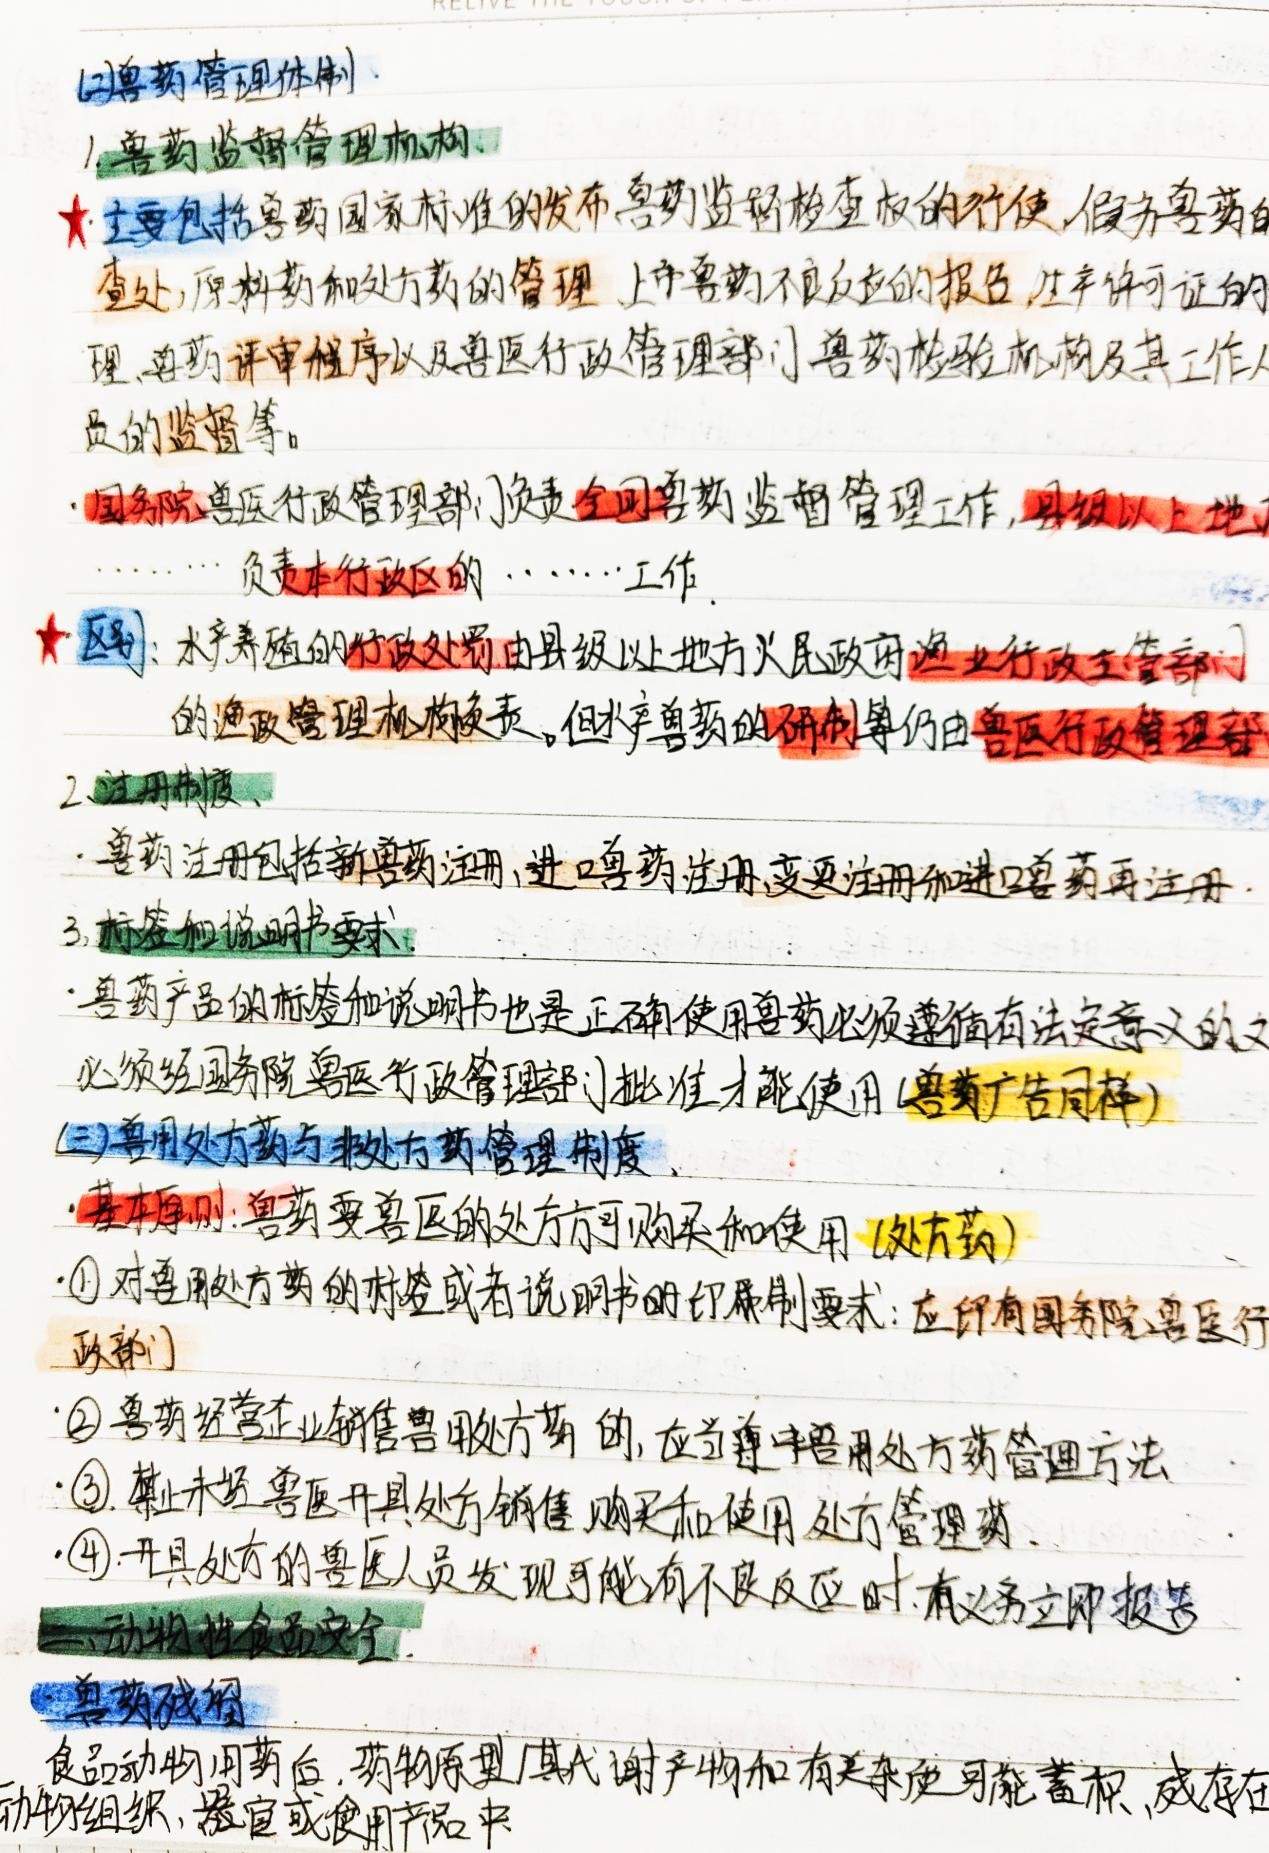 RELIVE THE TOUCH OF
(二)兽药管理体制.
1.兽药监督管理机构.
★·主要包括兽药国家标准的发布 兽药监督检查权的行使,假劣兽药的
查处,原料药和处方药的管理 上市兽药不良反应的报告,生产许可证的
理、兽药评审程序以及兽医行政管理部门兽药检验机构及其工作人
员的监督等。
·国务院兽医行政管理部门负责全国兽药监督管理工作,县级以上地方
········负责本行政区的·······工作.
★·区别:水产养殖的行政处罚由县级以上地方人民政府渔业行政主管部门
的渔政管理机构负责。但水产兽药的研制等仍由兽医行政管理部
2、注册制度、
·兽药注册包括新兽药注册、进口兽药注册、变更注册和进口兽药再注册.
3.标签和说明书要求.
·兽药产品的标签和说明书也是正确使用兽药必须遵循有法定意义的文
必须经国务院兽医行政管理部门批准才能使用(兽药广告同样)
(三)兽用处方药与非处方药管理制度、
·基本原则:兽药要兽医的处方方可购买和使用(处方药)
·①对兽用处方药的标签或者说明书的印制要求:应印有国务院兽医行
政部门
·②兽药经营企业销售兽用处方药的,应当遵守兽用处方药管理方法
·③.禁止未经兽医开具处方销售、购买和使用处方管理药.
·④.开具处方的兽医人员发现可能有不良反应时.有义务立即报告
二、动物性食品安全.
·兽药残留
食品动物用药后,药物原型/其代谢产物和有关杂质可能蓄积、或存在
动物组织、器官或食用产品中